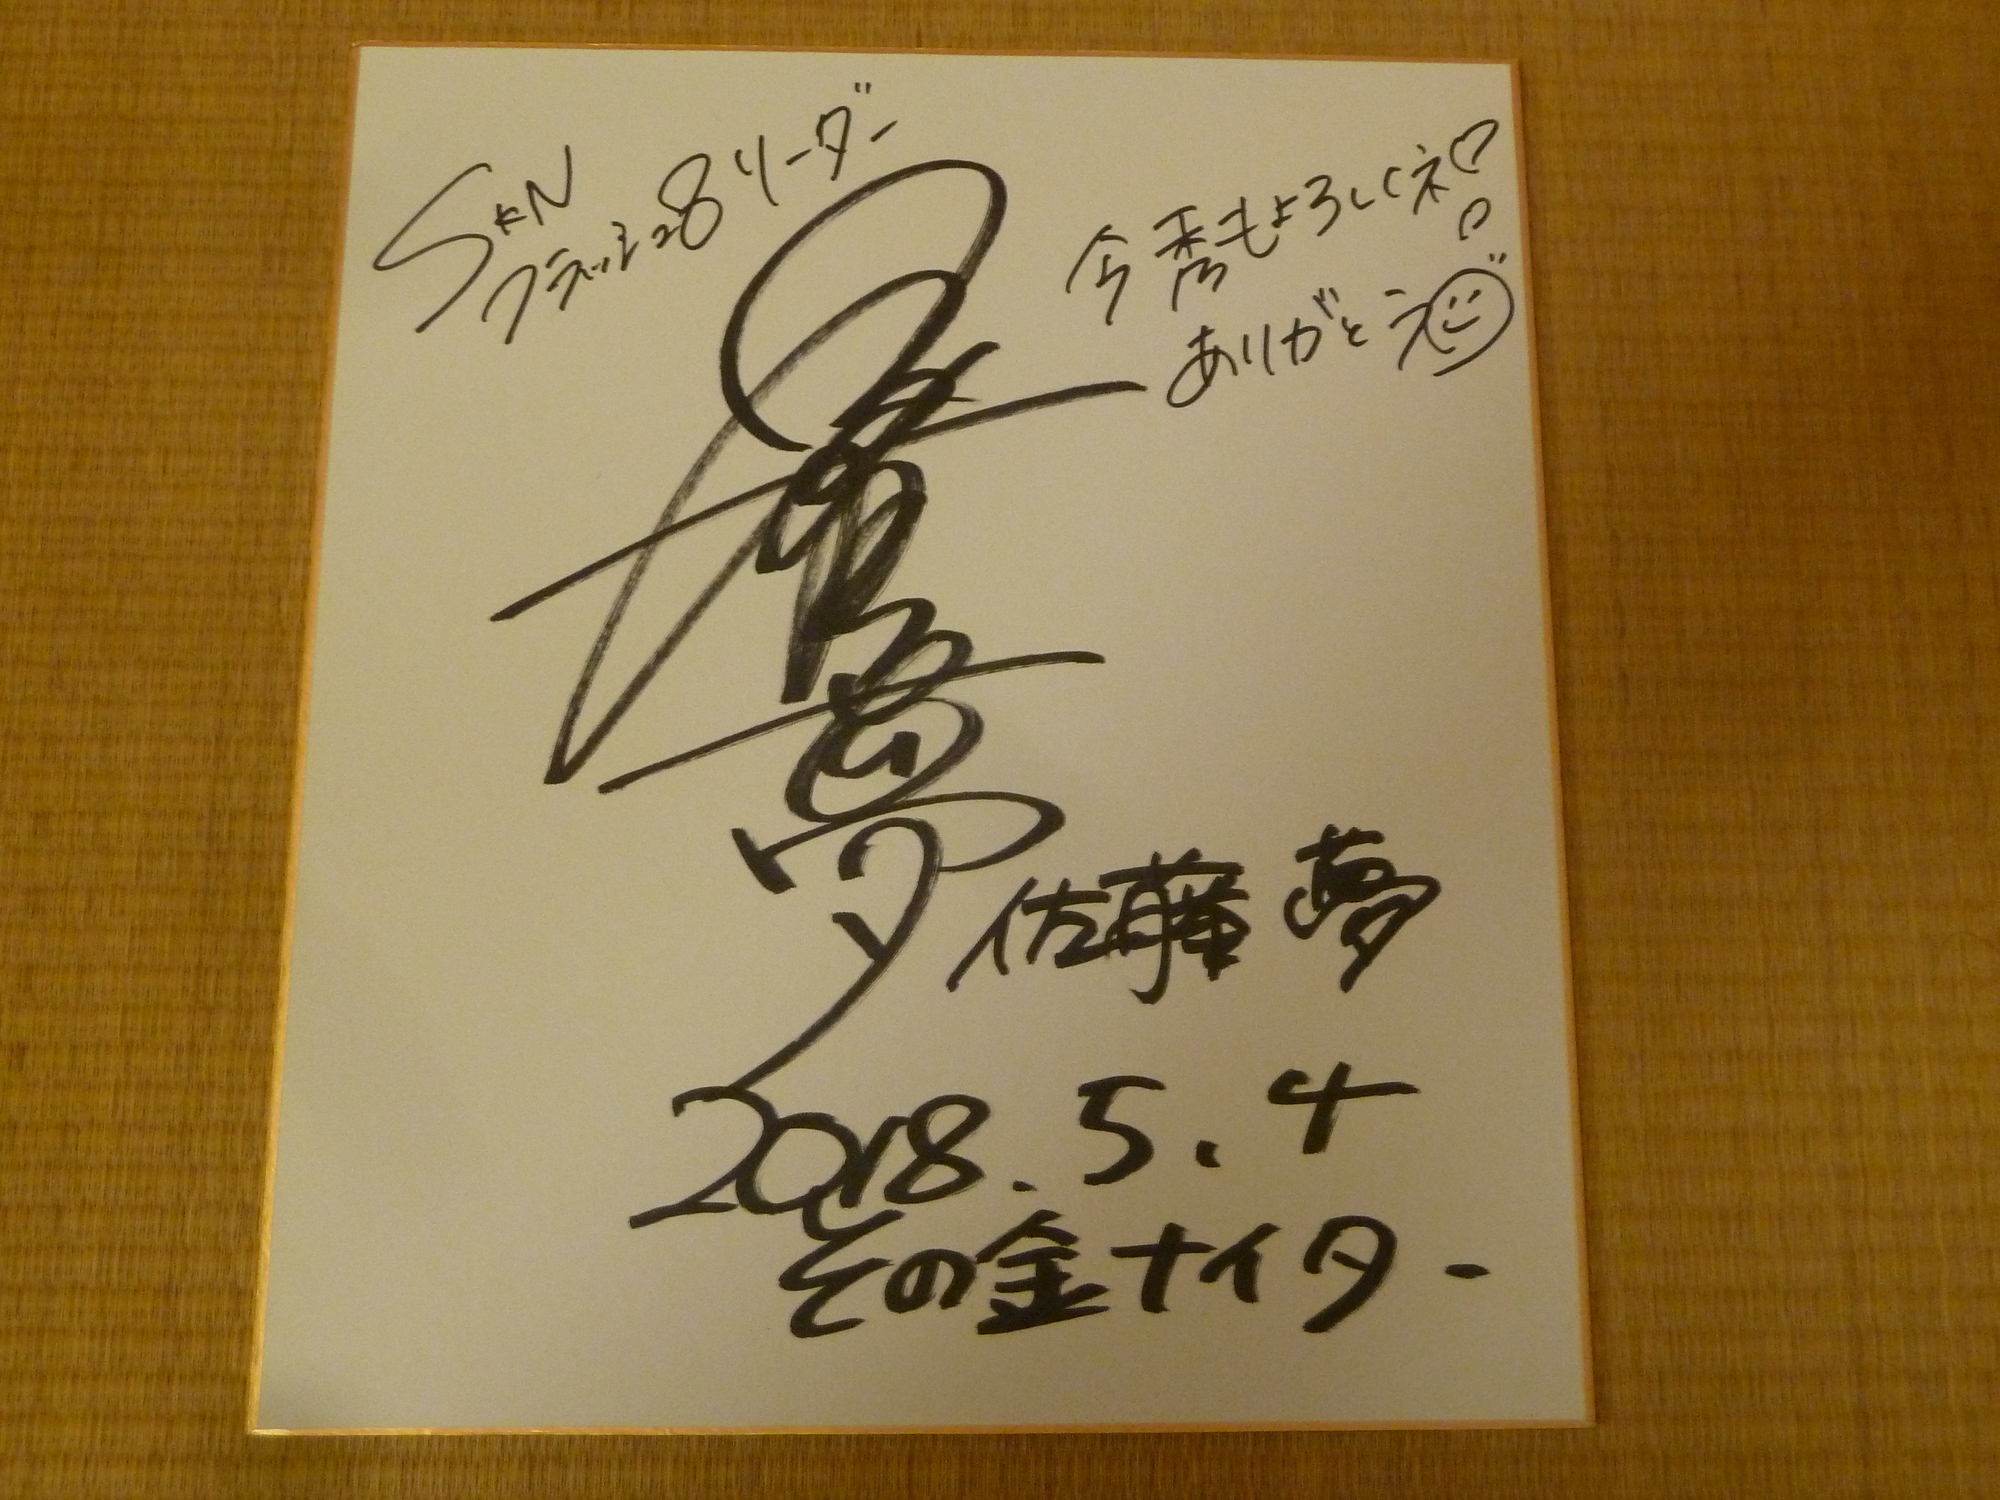 SKN
フラッシュ8リーダー
今秀もよろしくネ♡
ありがとう
佐藤 夢
2018.5.4
その金ナイター